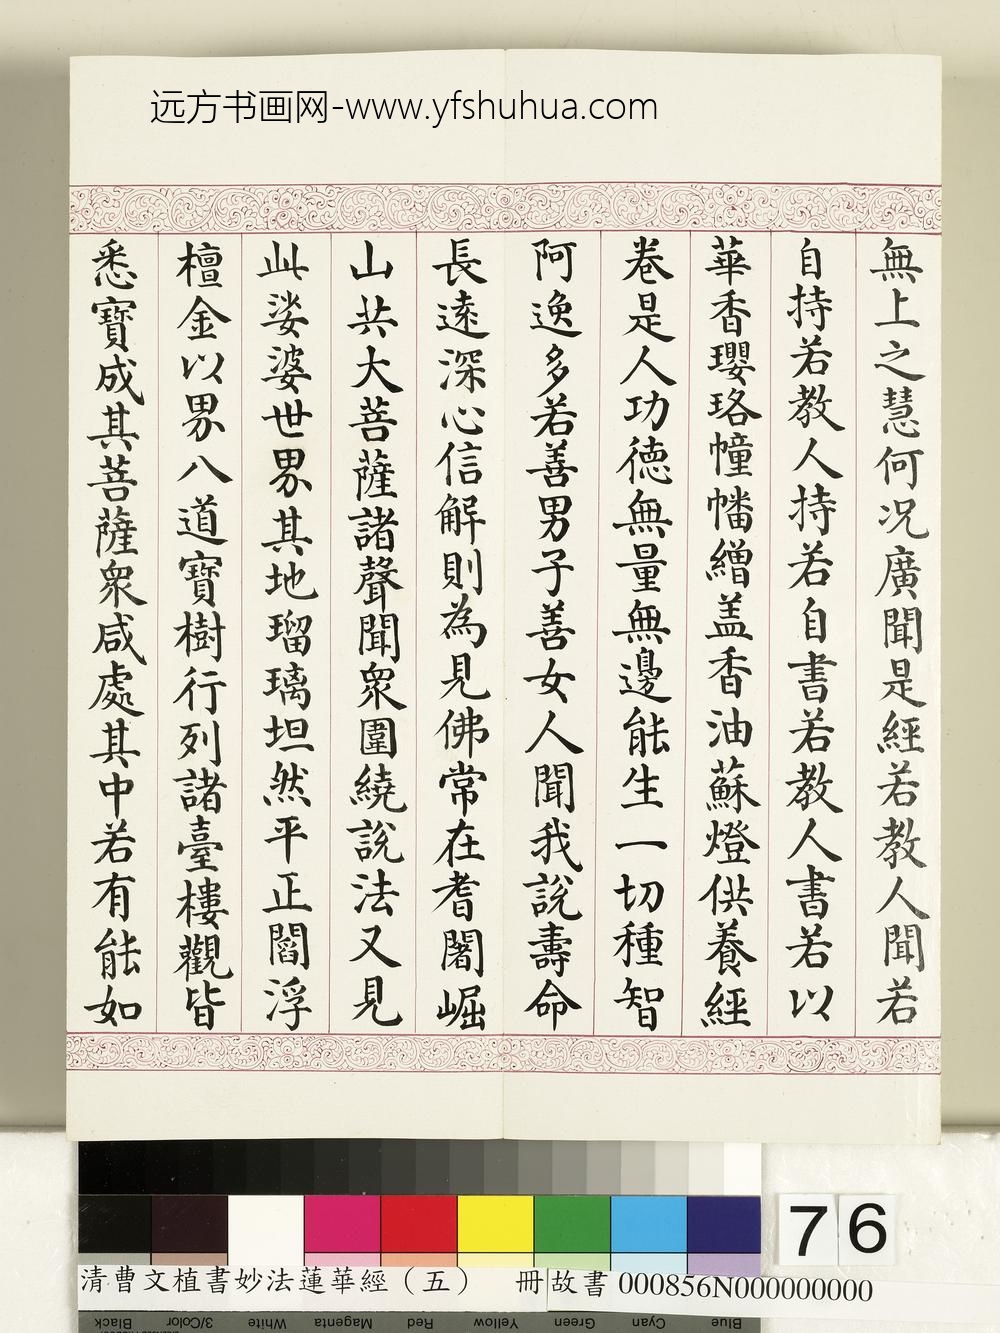 远方书画网-www.yfshuhua.com
無上之慧何况廣聞是經若教人聞若
自持若教人持若自書若教人書若以
華香瓔珞幢幡繒盖香油蘇燈供養經
卷是人功德無量無邊能生一切種智
阿逸多若善男子善女人聞我說壽命
長遠深心信解則為見佛常在耆闍崛
山共大菩薩諸聲聞眾圍繞說法又見
此娑婆世界其地瑠璃坦然平正閻浮
檀金以界八道寶樹行列諸臺樓觀皆
悉寶成其菩薩眾咸處其中若有能如
76
清曹文植書妙法蓮華經（五） 冊 故書 000856N000000000
Black 3/Color White Magenta Red Yellow Green Cyan Blue